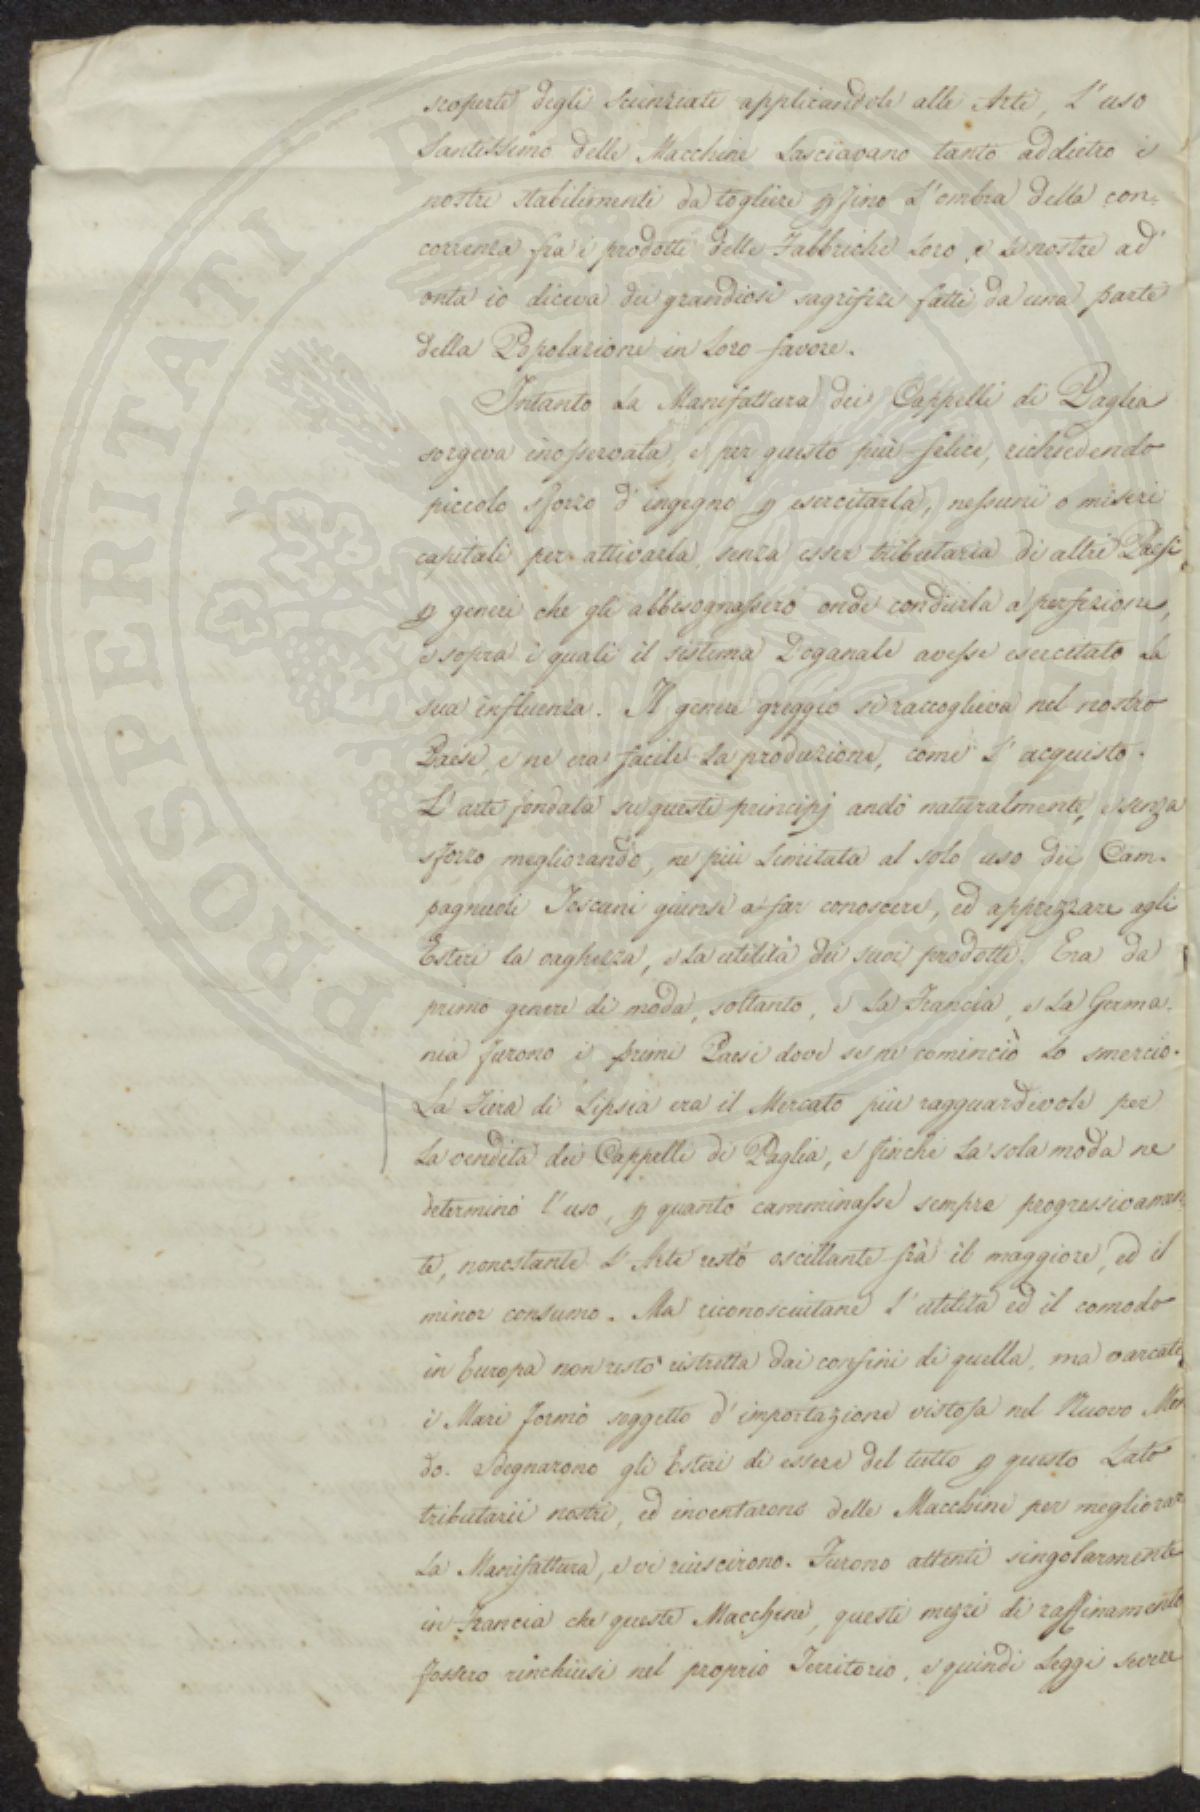 scoperte degli Scienziati applicandole alle Arti, L'uso
santissimo delle Macchine lasciavano tanto addietro i
nostri stabilimenti da togliere pfino L'ombra della con-
correnza fra i prodotti delle Fabbriche Loro, e le nostre ad
onta io diceva dei grandiosi sagrifizi fatti da una parte
della Popolazione in Loro favore.
Intanto La Manifattura dei Cappelli di Paglia
sorgeva inosservata, e per questo più felice, richiedendo
piccolo sforzo d'ingegno p esercitarla, nessuni o miseri
capitali per attivarla, senza esser tributaria di altri Paesi
p generi che gli abbisognassero onde condurla a perfezione,
e sopra i quali il sistema Doganale avesse esercitato La
sua influenza. Il genere greggio si raccoglieva nel nostro
Paese, e ne era facile La produzione, come L'acquisto.
L'arte fondata su questi principj andò naturalmente, e senza
sforzo megliorando, ne più Limitata al solo uso dei Cam-
pagnuoli Toscani giunse a far conoscere, ed apprezzare agli
Esteri la vaghezza, e La utilità dei suoi prodotti. Era da
primo genere di moda, soltanto, e La Francia, e La Germa-
nia furono i primi Paesi dove se ne cominciò Lo smercio.
La Fiera di Lipsia era il Mercato più ragguardevole per
La vendita dei Cappelli di Paglia, e finchè La sola moda ne
determinò l'uso, p quanto camminasse sempre progressivamen-
te, nonostante L'Arte restò oscillante frà il maggiore, ed il
minor consumo. Ma riconosciutane L'utilità ed il comodo
in Europa non restò ristretta dai confini di quella, ma varcati
i Mari formò soggetto d'importazione vistosa nel Nuovo Mon
do. Sdegnarono gli Esteri di essere del tutto p questo Lato
tributarii nostri, ed inventarono delle Macchine per megliorar
La Manifattura, e vi riuscirono. Furono attenti singolarmente
in Francia che queste Macchine, questi mezzi di raffinamento
fossero rinchiusi nel proprio Territorio, e quindi Leggi severe
PROSPERITATI PUBLICAE